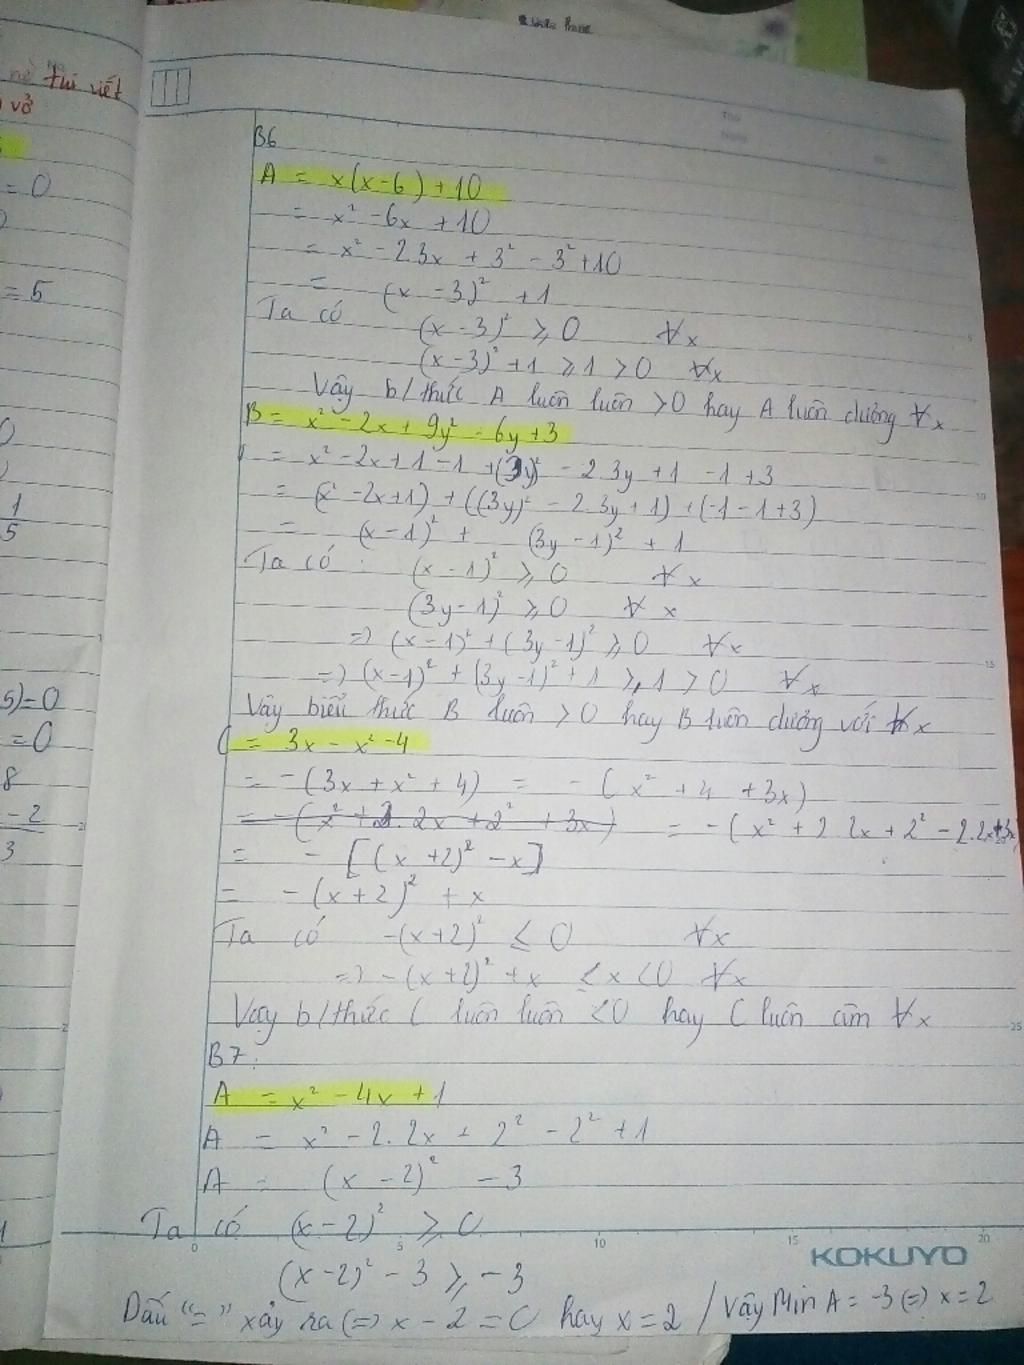 tui viết
vở
= 0
= 5
1
5
5)=0
= 0
8
-2
3
B6
A = x(x-6)+10
= x² -6x +10
= x² - 2.3x + 3² - 3² +10
= (x -3)² +1
Ta có (x-3)² ≥ 0 ∀x
(x-3)² +1 ≥ 1 > 0 ∀x
Vậy b/thức A luôn luôn >0 hay A luôn dương ∀x
B = x² -2x + 9y² - 6y +3
= x² -2x +1 -1 +(3y)² - 2.3y +1 -1 +3
= (x² -2x+1) + ((3y)² - 2.3y +1) + (-1 -1 +3)
= (x -1)² + (3y -1)² + 1
Ta có: (x -1)² ≥ 0 ∀x
(3y-1)² ≥ 0 ∀x
=> (x-1)² + (3y -1)² ≥ 0 ∀x
=> (x-1)² + (3y-1)² + 1 ≥ 1 > 0 ∀x
Vậy biểu thức B luôn > 0 hay B luôn dương với ∀x
C = 3x - x² -4
= -(3x + x² + 4) = -(x² + 4 + 3x)
= -(x² + 2.2x + 2² + 3x) = -(x² + 2.2x + 2² - 2.2x+3x
= - [(x +2)² - x]
= -(x + 2)² + x
Ta có -(x+2)² ≤ 0 ∀x
=> -(x+2)² + x ≤ x <0 ∀x
Vay b/thức C luôn luôn <0 hay C luôn âm ∀x
B7:
A = x² - 4x +1
A = x² - 2.2x + 2² - 2² +1
A = (x - 2)² - 3
Ta có (x-2)² ≥ 0
(x-2)² - 3 ≥ -3
Dấu "=" xảy ra (=) x - 2 = 0 hay x = 2 / Vậy Min A = -3 (=) x = 2
0 5 10 15 20
KOKUYO